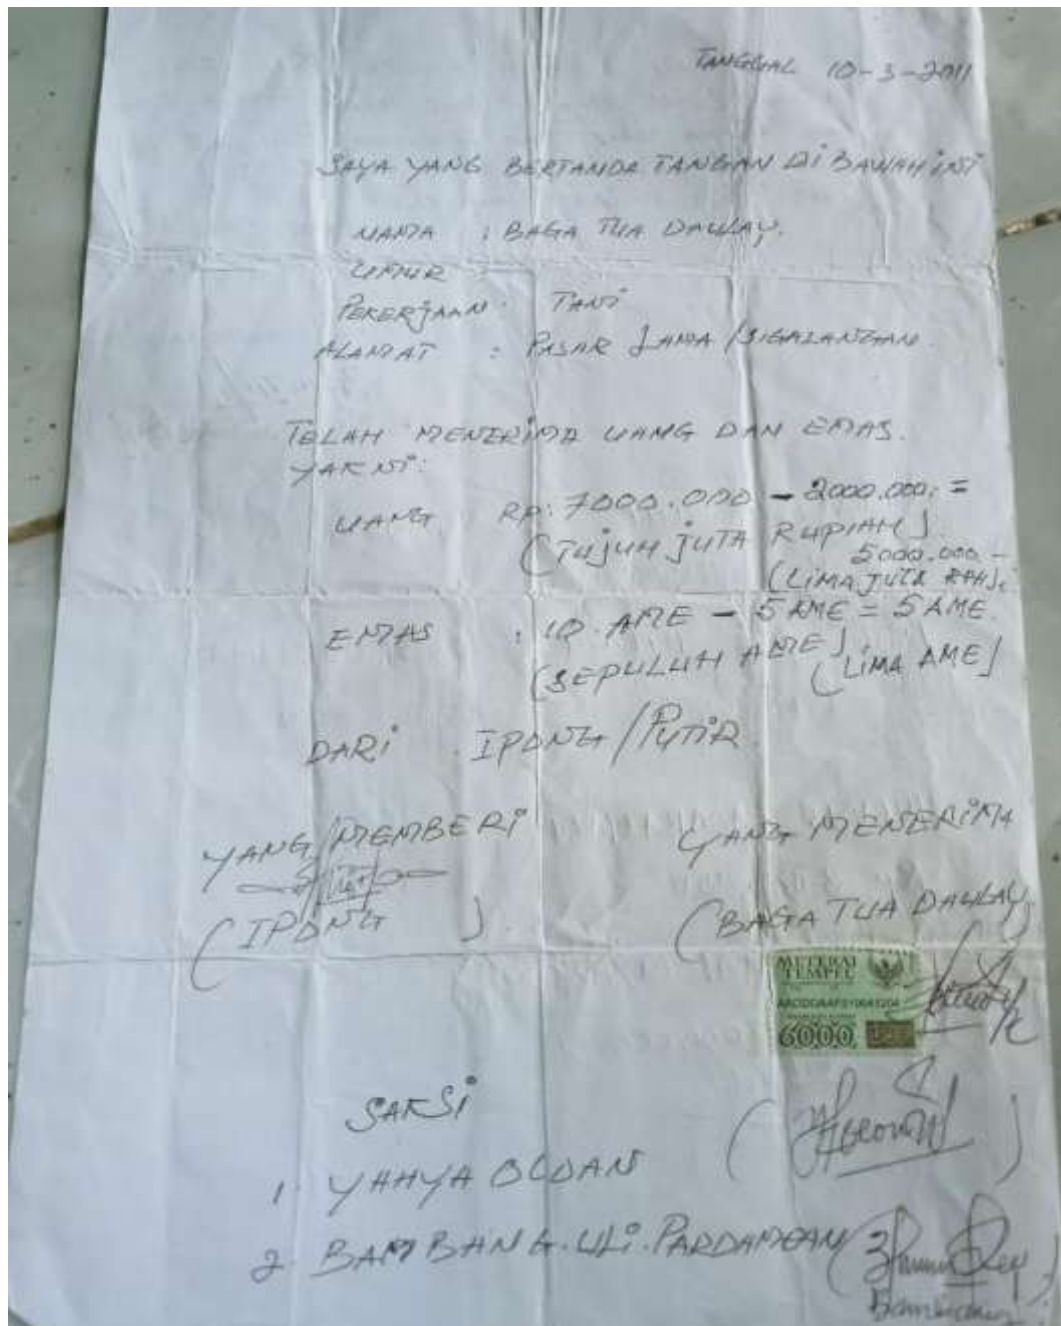 TANGGAL 10-3-2011
SAYA YANG BERTANDA TANGAN DI BAWAH INI
NAMA : BAGA TUA DAULAY.
UMUR
PEKERJAAN : TANI
ALAMAT : PASAR LAMA / SIGALANGAN
TELAH MENERIMA UANG DAN EMAS.
YAKNI:
UANG RP: 7000.000 - 2000.000: =
(TUJUH JUTA RUPIAH) 5000.000 -
(LIMA JUTA RPH).
EMAS : 10. AME - 5 AME = 5 AME.
(SEPULUH AME) (LIMA AME)
DARI IPONG / PUTIR
YANG MEMBERI YANG MENERIMA
(IPONG) (BAGA TUA DAULAY)
METERAI TEMPEL
6000
SAKSI
1. YAHYA OLOAN
2. BAMBANG. ULI. PARDAMEAN